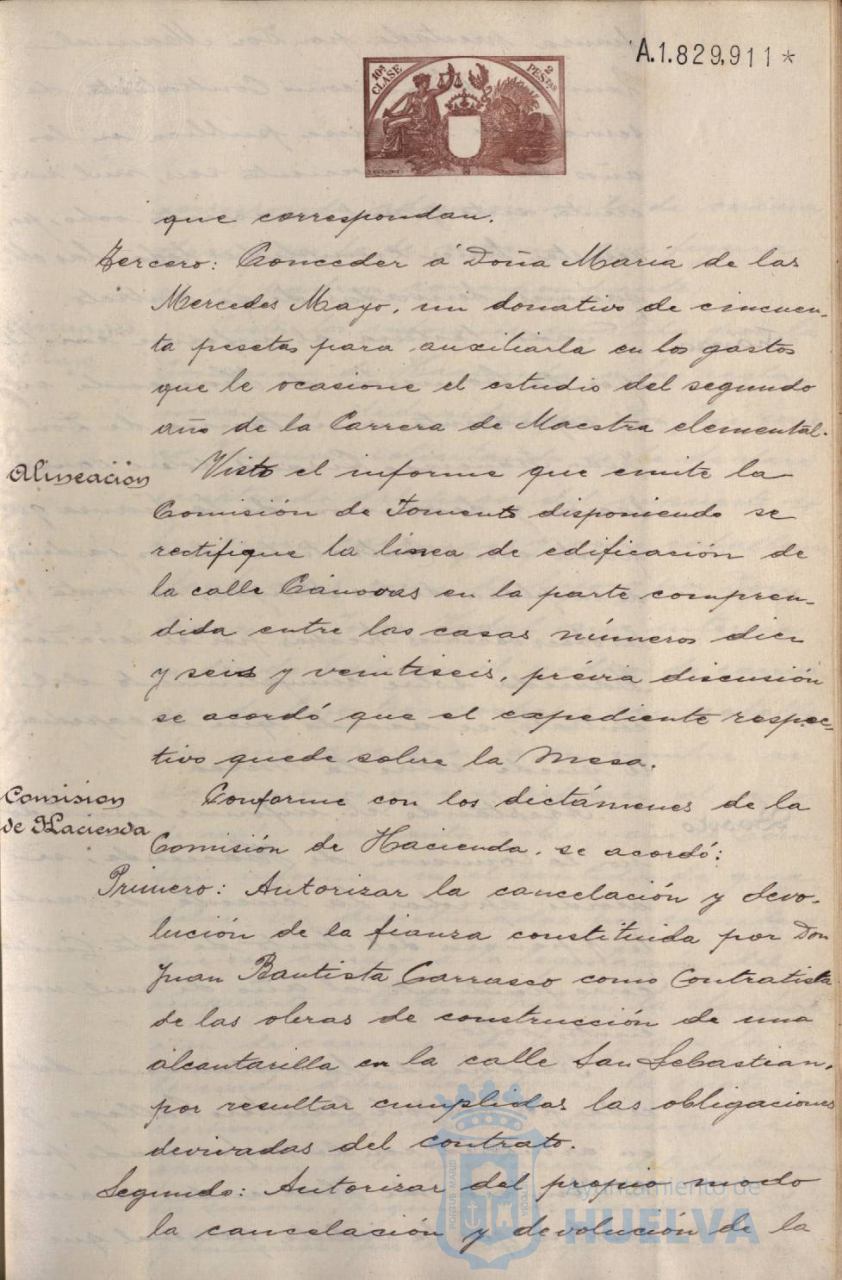 A.1.829,911*
10ª CLASE
2 PESTAS
que correspondan.
Tercero: Conceder á Doña María de las
Mercedes Mayo, un donativo de cincuen-
ta pesetas para auxiliarla en los gastos
que le ocasione el estudio del segundo
año de la Carrera de Maestra elemental.
Alineación
Visto el informe que emite la
Comisión de Fomento disponiendo se
rectifique la línea de edificación de
la calle Cánovas en la parte compren-
dida entre las casas números diez
y seis y veintiseis, prévia discusión
se acordó que el expediente respec-
tivo quede sobre la Mesa.
Comision
de Hacienda
Conforme con los dictámenes de la
Comisión de Hacienda, se acordó:
Primero: Autorizar la cancelación y devo-
lución de la fianza constituida por Don
Juan Bautista Carrasco como Contratista
de las obras de construcción de una
alcantarilla en la calle San Sebastian,
por resultar cumplidas las obligaciones
derivadas del contrato.
Segundo: Autorizar del propio modo
la cancelación y devolución de la
Ayuntamiento de
HUELVA